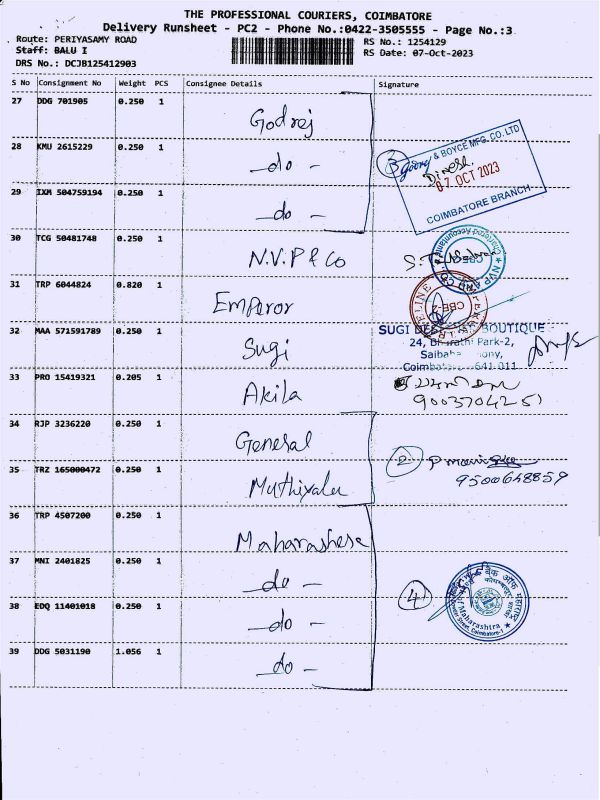 THE PROFESSIONAL COURIERS, COIMBATORE
Delivery Runsheet - PC2 - Phone No.:0422-3505555 - Page No.:3
Route: PERIYASAMY ROAD RS No.: 1254129
Staff: BALU I RS Date: 07-Oct-2023
DRS No.: DCJB125412903
S No Consignment No Weight PCS Consignee Details Signature
27 DDG 701905 0.250 1 Godrej
28 KMU 2615229 0.250 1 -do-
3 Godrej & BOYCE MFG. CO. LTD
Dinesh
07 OCT 2023
COIMBATORE BRANCH
29 IXM 504759194 0.250 1 -do-
30 TCG 50481748 0.250 1 N.V.P & Co
Chartered Accountants
NVP AND CO
CBE
31 TRP 6044824 0.820 1 Emperor
CBE-2
32 MAA 571591789 0.250 1 Sugi
SUGI BOUTIQUE
24, Bharathi Park-2,
Saibaba Colony,
Coimbatore 641 011
33 PRO 15419321 0.205 1 Akila
9003704251
34 RJP 3236220 0.250 1 General
2
35 TRZ 165000472 0.250 1 Muthiyalu
9500648859
36 TRP 4507200 0.250 1 Maharashese
37 MNI 2401825 0.250 1 -do-
4
बैंक ऑफ
Maharashtra
Coimbatore-1
38 EDQ 11401018 0.250 1 -do-
39 DDG 5031190 1.056 1 -do-